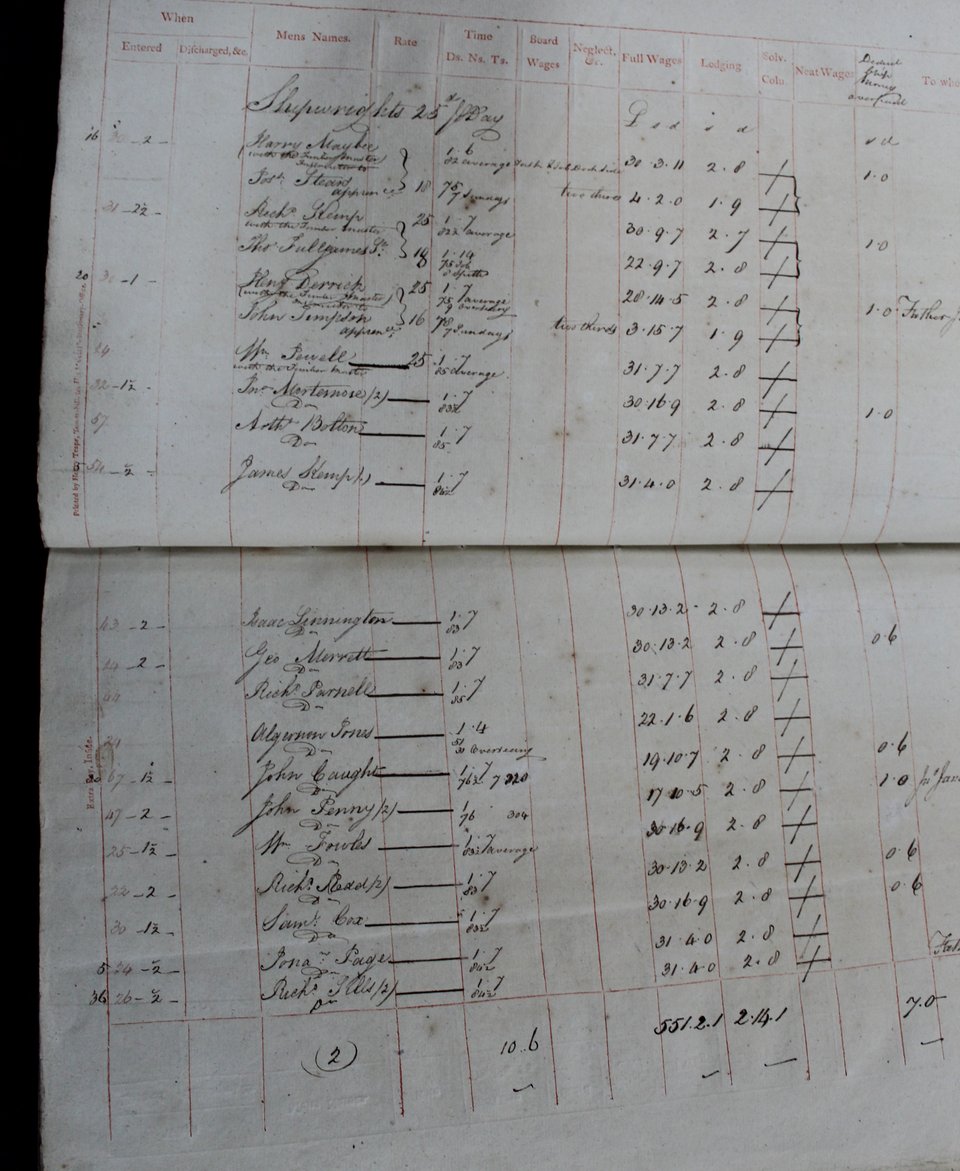 When Time Board Neglect, Solv.
Entered Discharged, &c. Mens Names. Rate Ds. Ns. Ts. Wages &c. Full Wages Lodging Colu. Neat Wages overpaid To who
Shipwrights 25 d pr Day £ s d s d s d
16 30 - 2 Harry Maybee 1 . 6 30 . 3 . 11 2 . 8 1 . 0
(with the Timber Master 82 average
Instructor to
Josh. Stears 18 75 two thirds 4 . 2 . 0 1 . 9
apprence 7 Sundays
31 - 2½ Richd. Kemp 25 1 . 7 30 . 9 . 7 2 . 7 1 . 0
with the Timber Master 82½ average
Thos. Fullyames Sr. 18 1 . 10 22 . 9 . 7 2 . 8
75 Job
20 30 - 1 Heny. Derrick 25 1 . 7 28 . 14 . 5 2 . 8 1 . 0 Father J
(with the Timber Master) 75 average
an instructor to
John Simpson 16 78 two thirds 3 . 15 . 7 1 . 9
apprence 7 Sundays
24 Wm. Jewell 25 1 . 7 31 . 7 . 7 2 . 8
with the Timber Master 85 average
32 - 1½ Jno. Mortemore (2) 1 . 7 30 . 16 . 9 2 . 8 1 . 0
Do 83½
57 Arthr. Bolton 1 . 7 31 . 7 . 7 2 . 8
Do 85
54 - ½ James Kemp (1) 1 . 7 31 . 4 . 0 2 . 8
Do 84½
Printed by Henry Teape, Tower-hill
43 - 2 Isaac Linnington 1 . 7 30 . 13 . 2 2 . 8
Do 83
24 - 2 Geo Merrett 1 . 7 30 . 13 . 2 2 . 8 0 . 6
Do 83
44 Richd. Parnell 1 . 7 31 . 7 . 7 2 . 8
Do 85
21 Algernon Jones 1 . 4 22 . 1 . 6 2 . 8
Do 51 Overseeing
67 - 1½ John Caught 1 . 7 19 . 10 . 7 2 . 8 0 . 6
Do 76½ 7 320
47 - 2 John Penny (2) 1 17 . 10 . 5 2 . 8 1 . 0
Do 76 304
25 - 1½ Wm. Fowles 1 . 7 30 . 16 . 9 2 . 8
Do 83½ average
22 - 2 Richd. Redd (2) 1 . 7 30 . 13 . 2 2 . 8 0 . 6
Do 83
30 - 1½ Saml. Cox 1 . 7 30 . 16 . 9 2 . 8 0 . 6
Do 83½
5 24 - ½ Jonan. Page 1 . 7 31 . 4 . 0 2 . 8
Do 84½
36 26 - ½ Richd. Ills (2) 1 . 7 31 . 4 . 0 2 . 8
Do 84½
Extra Pay, Inside.
(2) 10 . . 6 551 . 2 . 1 2 . 14 . 1 7 . 0